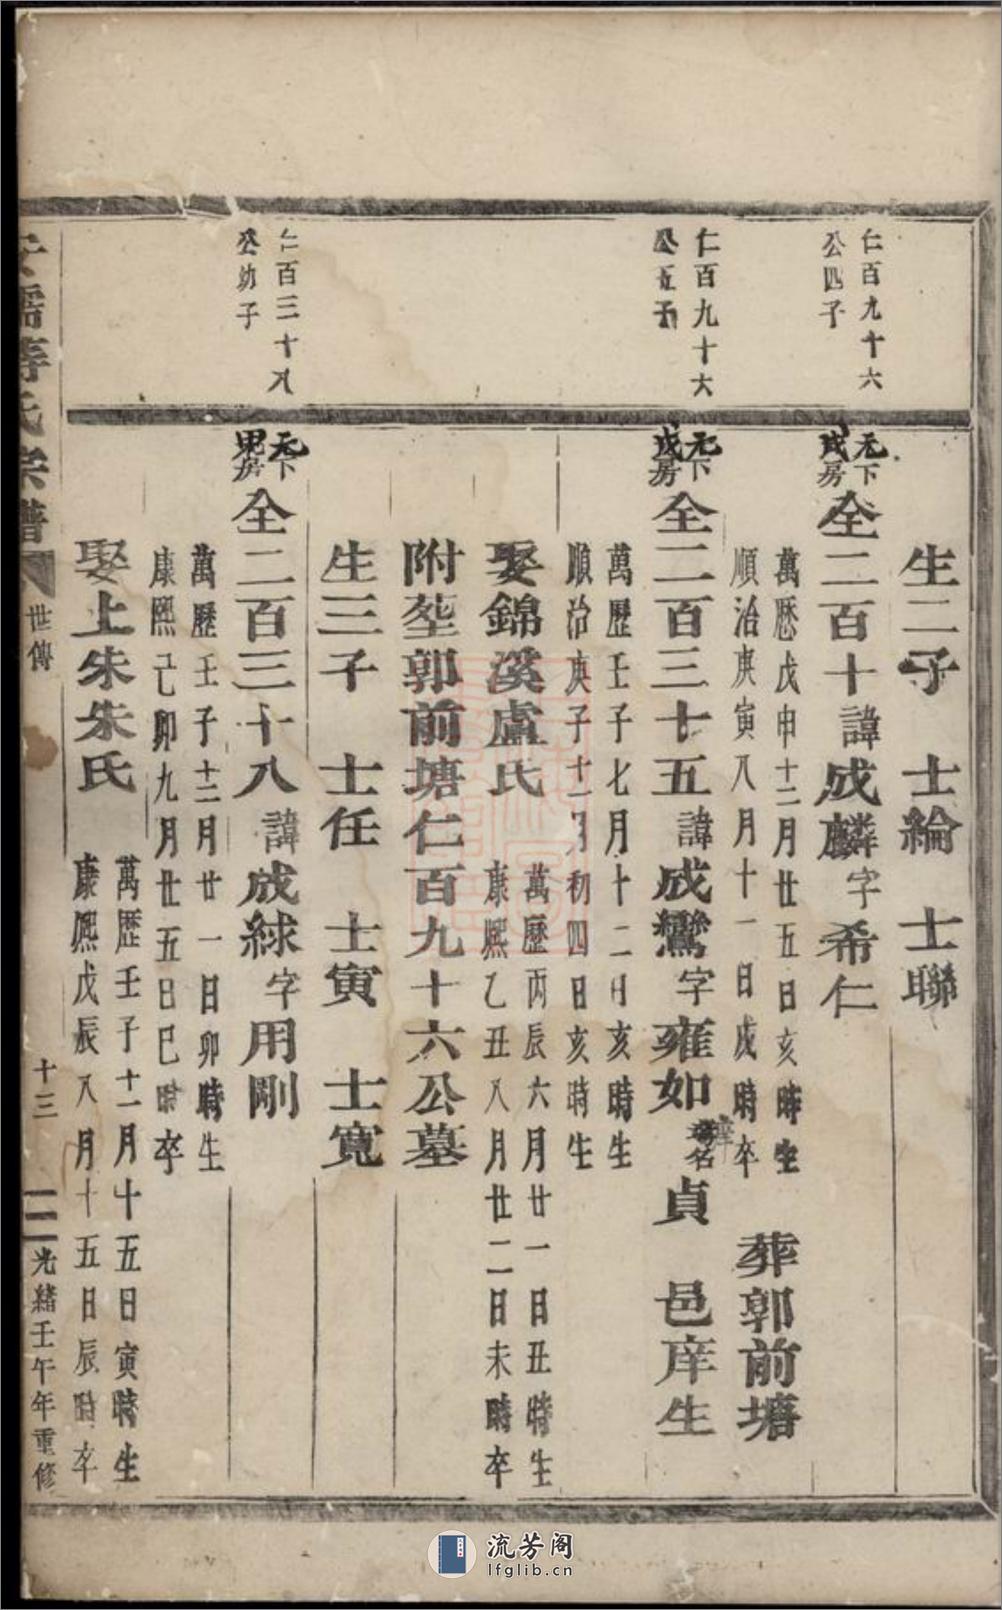 生二子 士綸 士聯
仁百九十六
公四子
元下
戊房
全二百十諱成麟字希仁
萬歷戊申十二月廿五日亥時生
順治庚寅八月十一日戌時卒
葬郭前塘
仁百九十六
公五子
元下
戊房
全二百三十五諱成鸞字雍如
庠名
貞 邑庠生
萬歷壬子七月十二日亥時生
順治庚子十二月初四日亥時生
娶錦溪盧氏
萬歷丙辰六月廿一日丑時生
康熙乙丑八月廿二日未時卒
附塟郭前塘仁百九十六公墓
生三子 士任 士寅 士寬
仁百三十八
公幼子
天下
甲房
全二百三十八諱成絿字用剛
萬歷壬子十二月廿一日卯時生
康熙己卯九月廿五日巳時卒
娶上朱朱氏
萬歷壬子十一月十五日寅時生
康熙戊辰八月十五日辰時卒
氏宗譜
世傳
十三
光緒壬午年重修
流芳阁
lfglib.cn